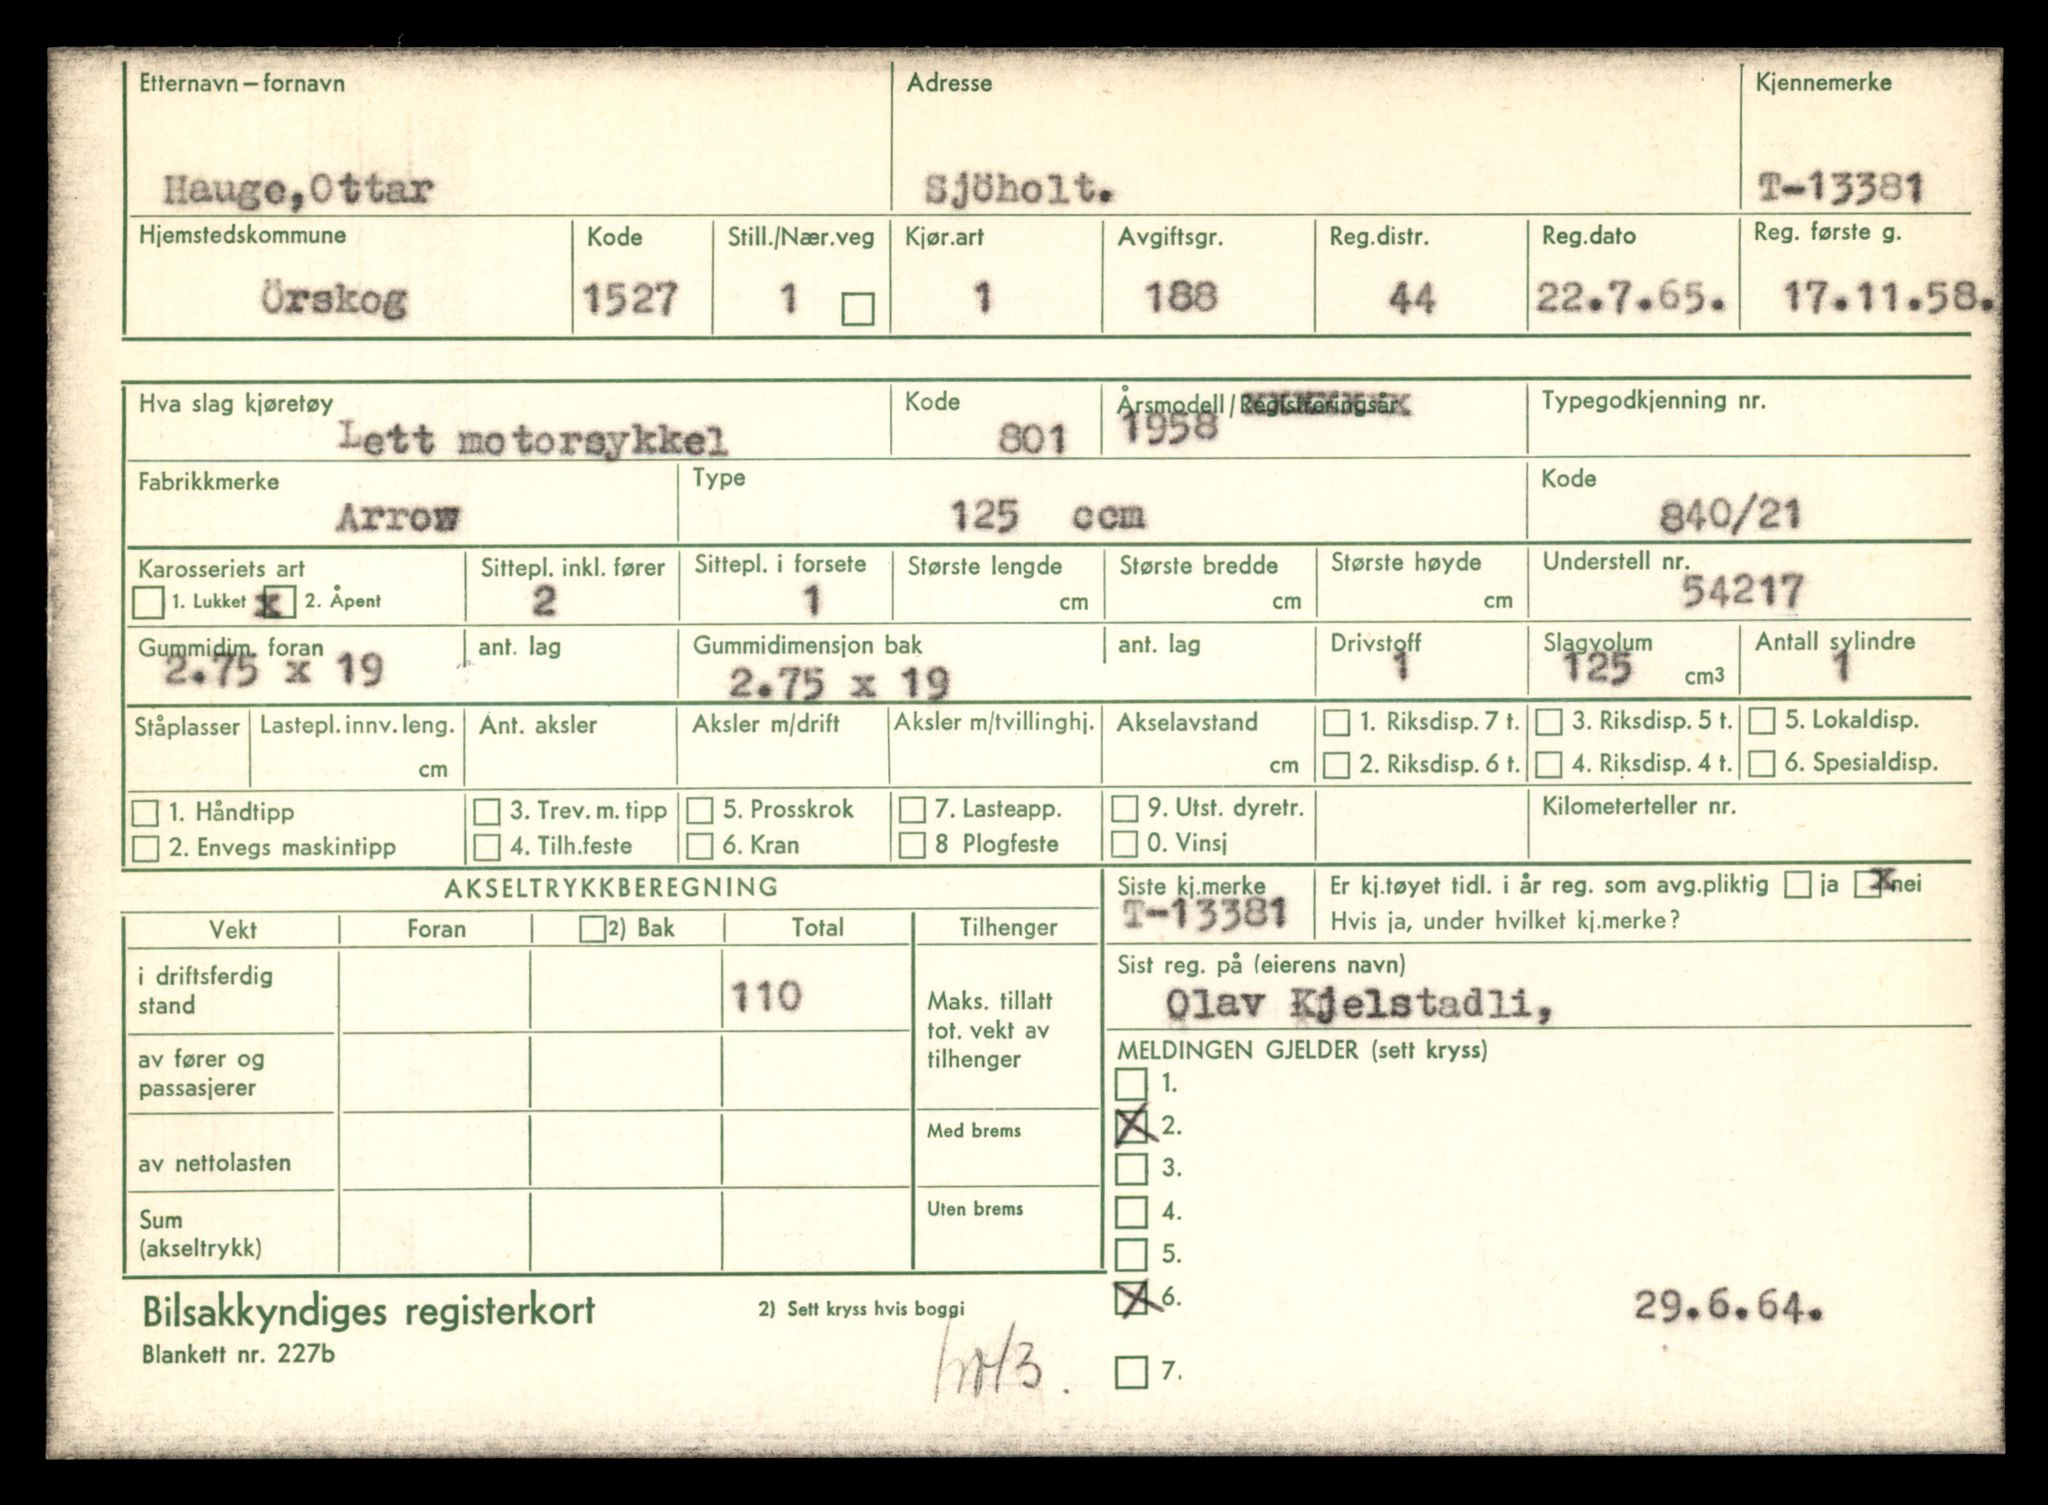 Etternavn – fornavn Adresse Kjennemerke
Hauge,Ottar Sjöholt. T-13381
Hjemstedskommune Kode Still./Nær.veg Kjør.art Avgiftsgr. Reg.distr. Reg.dato Reg. første g.
Örskog 1527 1 1 188 44 22.7.65. 17.11.58.
Hva slag kjøretøy Kode Årsmodell/Registreringsår Typegodkjenning nr.
Lett motorsykkel 801 1958
Fabrikkmerke Type Kode
Arrow 125 ccm 840/21
Karosseriets art Sittepl. inkl. fører Sittepl. i forsete Største lengde Største bredde Største høyde Understell nr.
1. Lukket x 2. Åpent 2 1 cm cm cm 54217
Gummidim. foran ant. lag Gummidimensjon bak ant. lag Drivstoff Slagvolum Antall sylindre
2.75 x 19 2.75 x 19 1 125 cm3 1
Ståplasser Lastepl. innv. leng. Ant. aksler Aksler m/drift Aksler m/tvillinghj. Akselavstand 1. Riksdisp. 7 t. 3. Riksdisp. 5 t. 5. Lokaldisp.
cm cm 2. Riksdisp. 6 t. 4. Riksdisp. 4 t. 6. Spesialdisp.
1. Håndtipp 3. Trev. m. tipp 5. Prosskrok 7. Lasteapp. 9. Utst. dyretr. Kilometerteller nr.
2. Envegs maskintipp 4. Tilh.feste 6. Kran 8 Plogfeste 0. Vinsj
AKSELTRYKKBEREGNING Siste kj.merke Er kj.tøyet tidl. i år reg. som avg.pliktig ja x nei
T-13381 Hvis ja, under hvilket kj.merke?
Vekt Foran 2) Bak Total Tilhenger
Sist reg. på (eierens navn)
Olav Kjelstadli,
i driftsferdig
stand 110
Maks. tillatt
tot. vekt av
tilhenger
MELDINGEN GJELDER (sett kryss)
av fører og
passasjerer
1.
X 2.
Med brems
av nettolasten
3.
Uten brems
4.
Sum
(akseltrykk)
5.
X 6. 29.6.64.
Bilsakkyndiges registerkort 2) Sett kryss hvis boggi
Blankett nr. 227b
7.